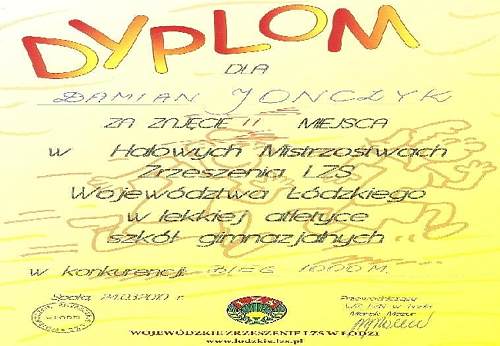 DYPLOM
DLA
DAMIAN JOŃCZYK
ZA ZAJĘCIE II MIEJSCA
w Halowych Mistrzostwach
Zrzeszenia LZS
Województwa Łódzkiego
w lekkiej atletyce
szkół gimnazjalnych
w konkurencji BIEG 1000 M.
Spała, 24.03.2010 r.
Przewodniczący
WZ LZS w Łodzi
Marek Mazur
WOJEWÓDZKIE ZRZESZENIE LZS W ŁODZI
www.lodzkie.lzs.pl